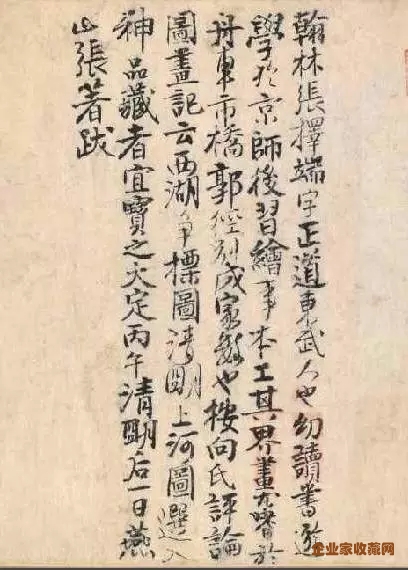 翰林張擇端字正道東武人也幼讀書遊
學於京師後習繪事本工其界畫尤嗜於
舟車市橋郭徑別成家數也按向氏評論
圖畫記云西湖争標圖清明上河圖選入
神品藏者宜寶之大定丙午清明后一日燕
山張著跋
企业家收藏网